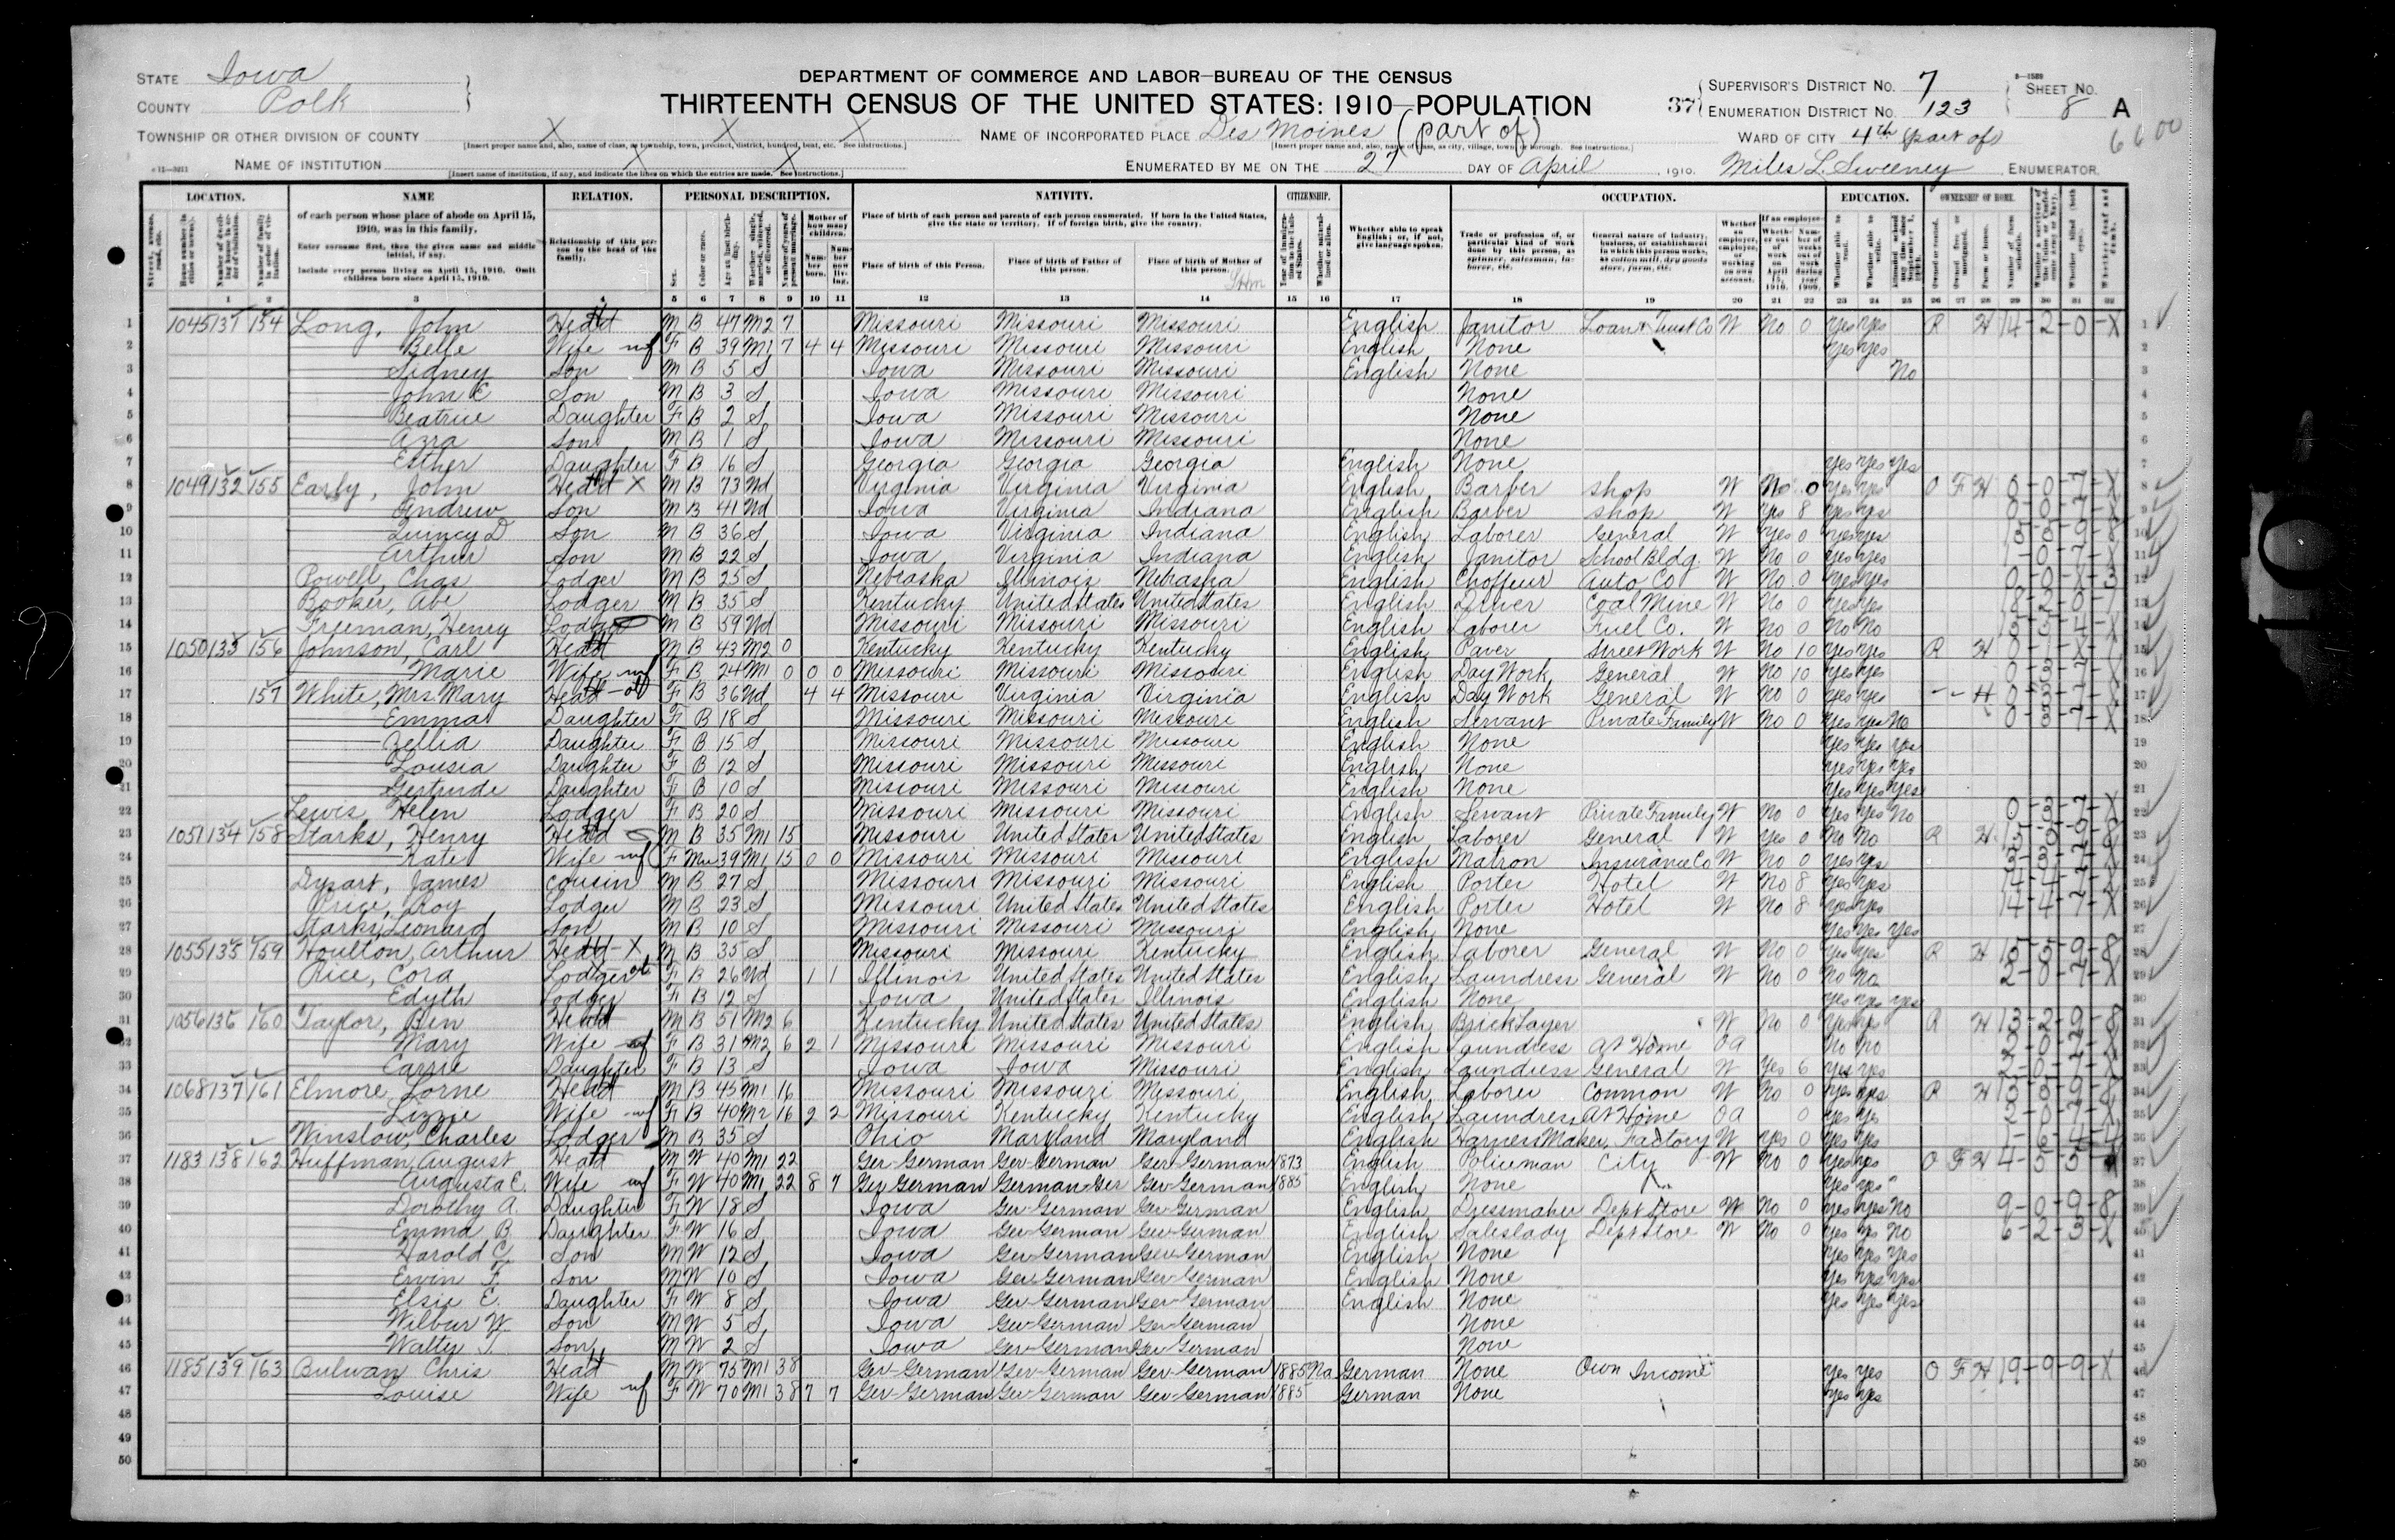 DEPARTMENT OF COMMERCE AND LABOR—BUREAU OF THE CENSUS
THIRTEENTH CENSUS OF THE UNITED STATES: 1910—POPULATION
STATE Iowa
COUNTY Polk
TOWNSHIP OR OTHER DIVISION OF COUNTY X X X
NAME OF INSTITUTION X X
NAME OF INCORPORATED PLACE Des Moines (part of)
ENUMERATED BY ME ON THE 27 DAY OF April, 1910. Miles L. Sweeney ENUMERATOR
37 SUPERVISOR'S DISTRICT No. 7
ENUMERATION DISTRICT No. 123
SHEET No. 8 A
WARD OF CITY 4th (part of)
6600
LOCATION. NAME RELATION. PERSONAL DESCRIPTION. NATIVITY. CITIZENSHIP. OCCUPATION. EDUCATION. OWNERSHIP OF HOME.
of each person whose place of abode on April 15, 1910, was in this family.
Enter surname first, then the given name and middle initial, if any.
Include every person living on April 15, 1910. Omit children born since April 15, 1910.
Relationship of this person to the head of the family.
Place of birth of each person and parents of each person enumerated. If born in the United States, give the state or territory. If of foreign birth, give the country.
Place of birth of this Person. Place of birth of Father of this person. Place of birth of Mother of this person.
Whether able to speak English; or, if not, give language spoken.
1 2 3 4 5 6 7 8 9 10 11 12 13 14 15 16 17 18 19 20 21 22 23 24 25 26 27 28 29 30 31 32
1 1045 131 154 Long, John Head M B 47 M2 7 Missouri Missouri Missouri English Janitor Loan & Trust Co W No 0 Yes Yes R H 14-2-0-X
2 Belle Wife F B 39 M1 7 4 4 Missouri Missouri Missouri English None Yes Yes
3 Sidney Son M B 5 S Iowa Missouri Missouri English None No
4 John E Son M B 3 S Iowa Missouri Missouri None
5 Beatrice Daughter F B 2 S Iowa Missouri Missouri None
6 Azra Son M B 1 S Iowa Missouri Missouri None
7 Esther Daughter F B 16 S Georgia Georgia Georgia English None Yes Yes Yes
8 1049 132 155 Early, John Head X M B 73 Wd Virginia Virginia Virginia English Barber Shop W No 0 Yes Yes O F H 0-0-7-X
9 Andrew Son M B 41 Wd Iowa Virginia Indiana English Barber Shop W Yes 8 Yes Yes 0-0-7-X
10 Quincy D Son M B 36 S Iowa Virginia Indiana English Laborer General W Yes 0 Yes Yes
11 Arthur Son M B 22 S Iowa Virginia Indiana English Janitor School Bldg. W No 0 Yes Yes
12 Powell, Chas Lodger M B 25 S Nebraska Illinois Nebraska English Choffeur Auto Co W No 0 Yes Yes
13 Booker, Abe Lodger M B 35 S Kentucky United States United States English Driver Coal Mine W No 0 Yes Yes
14 Freeman, Henry Lodger M B 59 Wd Missouri Missouri Missouri English Laborer Fuel Co. W No 0 No No
15 1050 133 156 Johnson, Carl Head M B 43 M2 0 Kentucky Kentucky Kentucky English Paver Street Work W No 10 Yes Yes R H
16 Marie Wife F B 24 M1 0 0 0 Missouri Missouri Missouri English Day Work General W No 10 Yes Yes
17 157 White, Mrs. Mary Head F B 36 Wd 4 4 Missouri Virginia Virginia English Day Work General W No 0 Yes Yes H
18 Emma Daughter F B 18 S Missouri Missouri Missouri English Servant Private Family W No 0 Yes Yes No 0-3-7-X
19 Zellia Daughter F B 15 S Missouri Missouri Missouri English None Yes Yes Yes
20 Lousia Daughter F B 12 S Missouri Missouri Missouri English None Yes Yes Yes
21 Gertrude Daughter F B 10 S Missouri Missouri Missouri English None Yes Yes Yes
22 Lewis Helen Lodger F B 20 S Missouri Missouri Missouri English Servant Private Family W No 0 Yes Yes No 0-3-7-X
23 1051 134 158 Starks, Henry Head M B 35 M1 15 Missouri United States United States English Laborer General W Yes 0 No No R H
24 Kate Wife F Mu 39 M1 15 0 0 Missouri Missouri Missouri English Matron Insurance Co W No 0 Yes Yes
25 Dysart, James Cousin M B 27 S Missouri Missouri Missouri English Porter Hotel W No 8 Yes Yes 14-4-7-X
26 Price, Roy Lodger M B 23 S Missouri United States United States English Porter Hotel W No 8 Yes Yes 14-4-7-X
27 Starks, Leonard Son M B 10 S Missouri Missouri Missouri English None Yes Yes Yes
28 1055 135 159 Houlton, Arthur Head X M B 35 S Missouri Missouri Kentucky English Laborer General W No 0 Yes Yes R H
29 Rice, Cora Lodger F B 26 Wd 1 1 Illinois United States United States English Laundress General W No 0 No No 2-0-7-X
30 Edyth Lodger F B 12 S Iowa United States Illinois English None Yes Yes Yes
31 1056 136 160 Taylor, Ben Head M B 51 M2 6 Kentucky United States United States English Brick Layer W No 0 Yes Yes R H 13-2-9-8
32 Mary Wife F B 31 M2 6 2 1 Missouri Missouri Missouri English Laundress At Home OA No No 2-0-7-X
33 Carrie Daughter F B 13 S Iowa Iowa Missouri English Laundress General W Yes 6 Yes Yes 2-0-7-X
34 1068 137 161 Elmore, Lorne Head M B 45 M1 16 Missouri Missouri Missouri English Laborer Common W No 0 Yes Yes R H
35 Lizzie Wife F B 40 M2 16 2 2 Missouri Kentucky Kentucky English Laundress At Home OA 0 Yes Yes 2-0-7-X
36 Winslow, Charles Lodger M B 35 S Ohio Maryland Maryland English Harness Maker Factory W Yes 0 Yes Yes
37 1183 138 162 Huffman, August Head M W 40 M1 22 Ger-German Ger-German Ger-German 1873 English Policeman City W No 0 Yes Yes O F H
38 Augusta C. Wife F W 40 M1 22 8 7 Ger German German-Ger Ger-German 1885 English None Yes Yes
39 Dorothy A. Daughter F W 18 S Iowa Ger-German Ger-German English Dressmaker Dept Store W No 0 Yes Yes No 9-0-9-8
40 Emma B. Daughter F W 16 S Iowa Ger-German Ger-German English Saleslady Dept Store W No 0 Yes Yes No 6-2-3-X
41 Harold C. Son M W 12 S Iowa Ger-German Ger-German English None Yes Yes Yes
42 Ervin F. Son M W 10 S Iowa Ger-German Ger-German English None Yes Yes Yes
43 Elsie E. Daughter F W 8 S Iowa Ger-German Ger-German English None Yes Yes Yes
44 Wilbur W. Son M W 5 S Iowa Ger-German Ger-German None
45 Walter T. Son M W 2 S Iowa Ger-German Ger-German None
46 1185 139 163 Bulwan Chris Head M W 75 M1 38 Ger-German Ger-German Ger-German 1885 Na German None Own Income Yes Yes O F H 19-9-9-X
47 Louise Wife F W 70 M1 38 7 7 Ger-German Ger-German Ger-German 1885 German None Yes Yes
48
49
50